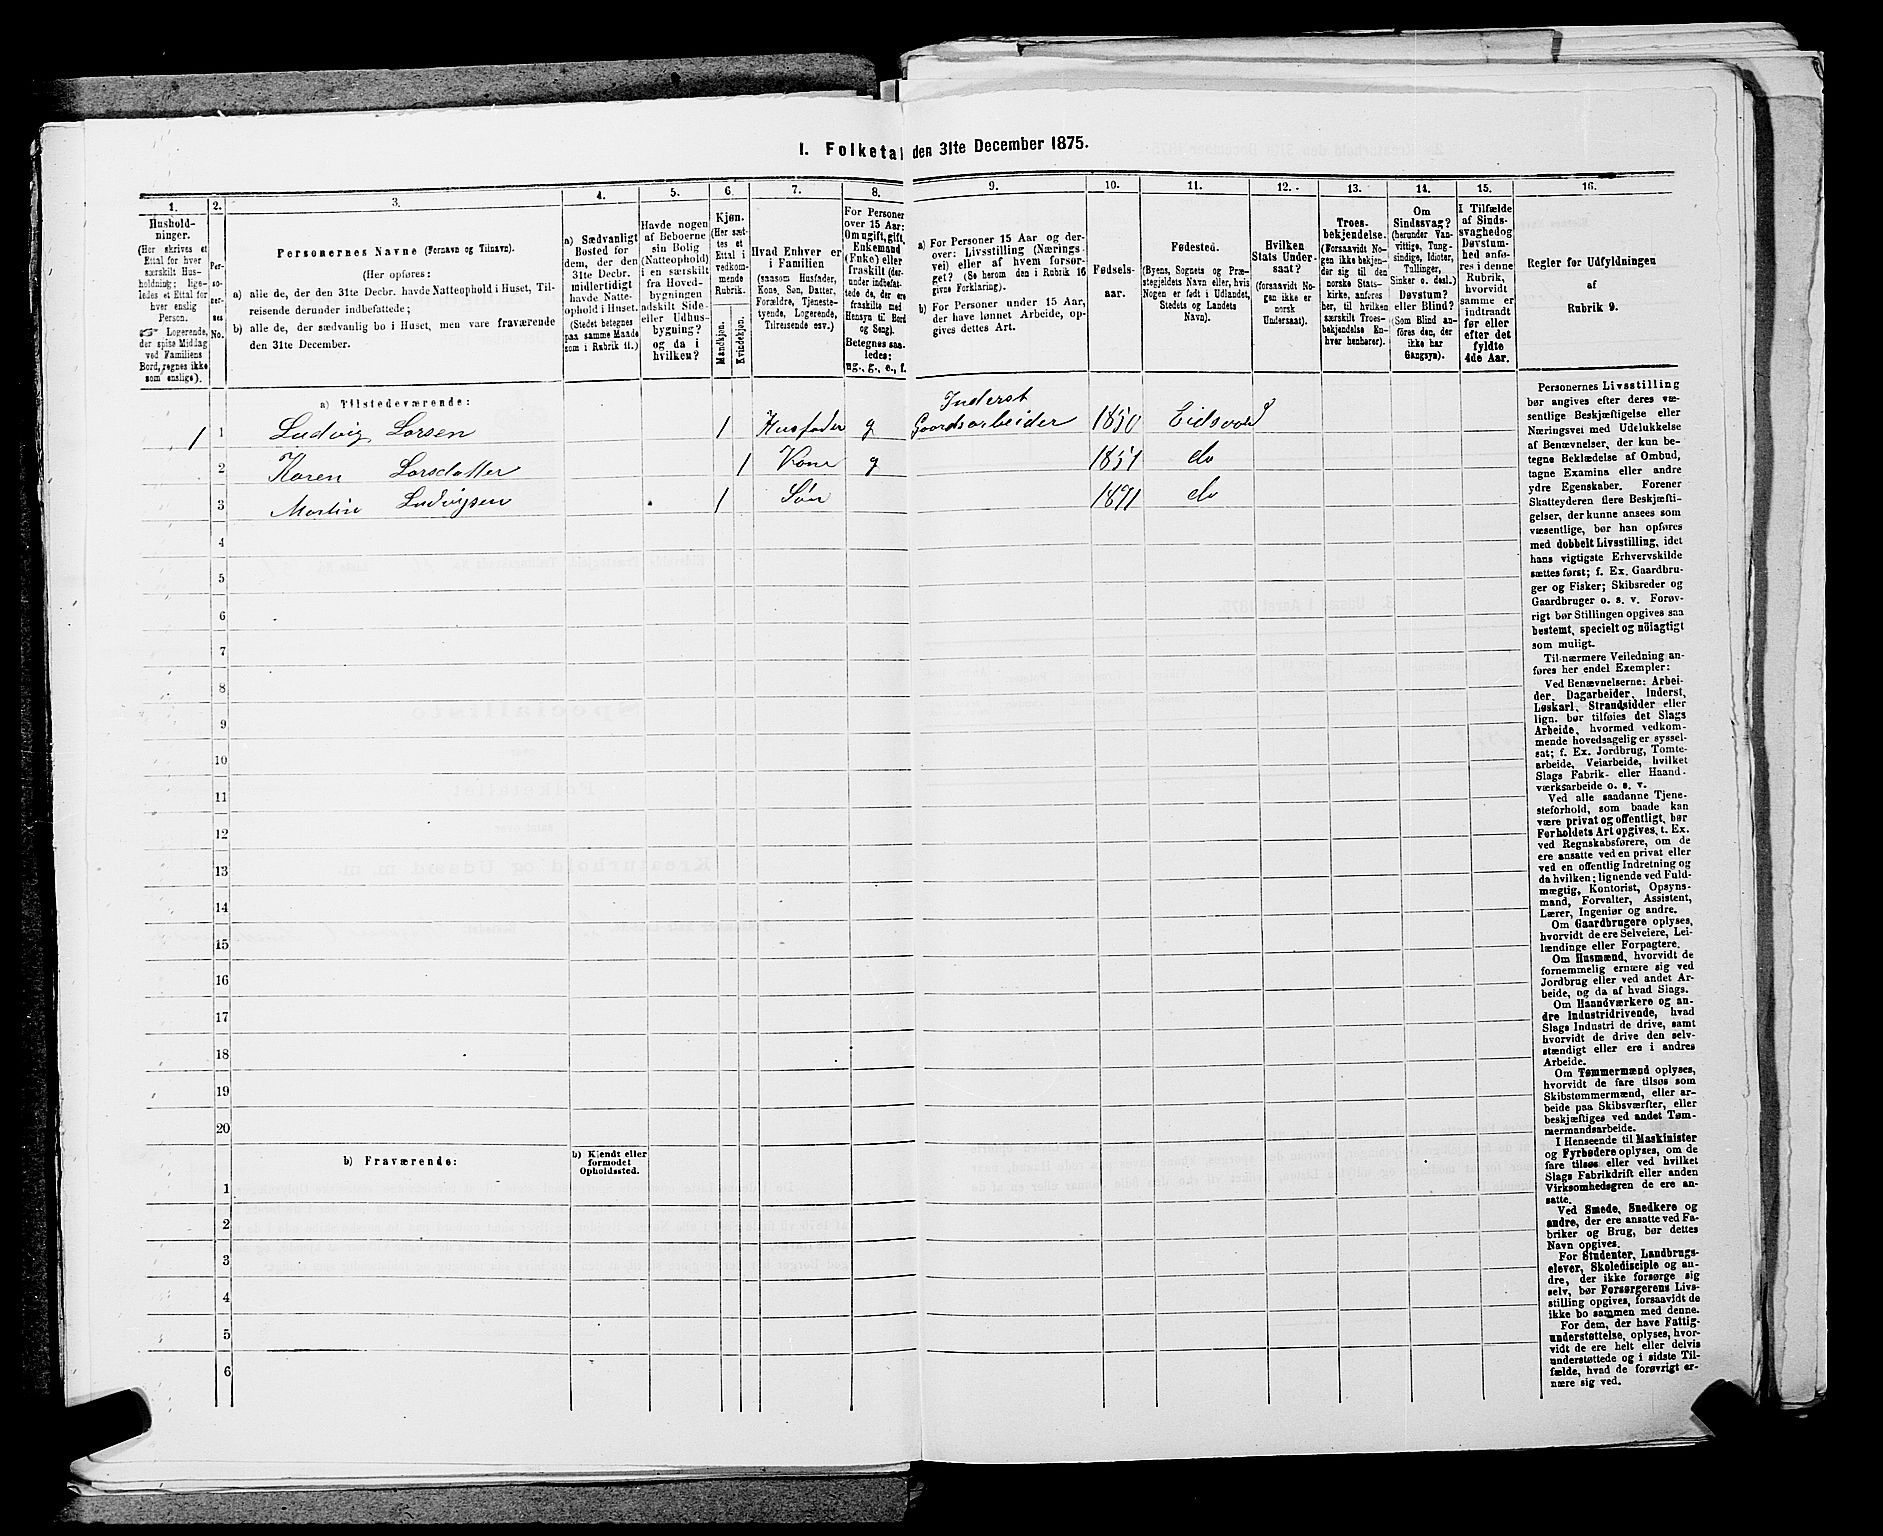 I. Folketal den 31te December 1875.
1. 2. 3. 4. 5. 6 7. 8. 9. 10. 11. 12. 13. 14. 15. 16.
Husholdninger.
(Her skrives et
Ettal for hver
særskilt Husholdning;
ligeledes et Ettal for
hver enslig
Person.
☞ Logerende,
der spise Middag
ved Familiens
Bord, regnes ikke
som enslige).
Personernes
No.
Personernes Navne (Fornavn og Tilnavn).
(Her opføres:
a) alle de, der den 31te Decbr. havde Natteophold i Huset, Tilreisende
derunder indbefattede;
b) alle de, der sædvanlig bo i Huset, men vare fraværende
den 31te December.
a) Sædvanligt
Bosted for
dem, der den
31te Decbr.
midlertidigt
havde Natteophold
i Huset.
(Stedet betegnes
paa samme Maade
som i Rubrik 11.)
Havde nogen
af Beboerne
sin Bolig
(Natteophold)
i en særskilt
fra Hovedbygningen
adskilt Side-
eller Udhusbygning?
og da i
hvilken?
Kjøn.
(Her sættes
et
Ettal i
vedkommende
Rubrik.
Mandkjøn.
Kvindekjøn.
Hvad Enhver er
i Familien
(saasom Husfader,
Kone, Søn, Datter,
Forældre, Tjenestetyende,
Logerende,
Tilreisende osv.)
For Personer
over 15 Aar:
Om ugift, gift,
Enkemand
(Enke) eller
fraskilt (derunder
indbefattede
de, der ere
fraskilte med
Hensyn til Bord
og Seng).
Betegnes saaledes:
ug., g., e., f.
a) For Personer 15 Aar og derover:
Livsstilling (Næringsvei)
eller af hvem forsørget?
(Se herom den i Rubrik 16
givne Forklaring).
b) For Personer under 15 Aar,
der have lønnet Arbeide, opgives
dettes Art.
Fødselsaar.
Fødested.
(Byens, Sognets og Præstegjeldets
Navn eller, hvis
Nogen er født i Udlandet,
Stedets og Landets
Navn).
Hvilken
Stats Undersaat?
(forsaavidt Nogen
ikke er
norsk
Undersaat).
Troesbekjendelse.
(Forsaavidt Nogen
ikke bekjender
sig til den
norske Statskirke,
anføres,
til hvilken
særskilt Troesbekjendelse
Enhver
henhører).
Om
Sindssvag?
(herunder Vanvittige,
Tungsindige,
Idioter,
Tullinger,
Sinker o. desl.)
Døvstum?
eller Blind?
(Som Blind anføres
den, der
ikke har
Gangsyn).
I Tilfælde
af Sindssvaghed
og
Døvstumhed
anføres
i denne
Rubrik,
hvorvidt
samme er
indtraadt
før eller
efter det
fyldte
4de Aar.
Regler for Udfyldningen
af
Rubrik 9.
a) Tilstedeværende:
Inderst
1 1 Ludvig Larsen 1 Husfader g Gaardsarbeider 1850 Eidsvold
2 Karen Larsdatter 1 Kone g 1851 do
3 Martin Ludvigsen 1 Søn 1871 do
4
5
6
7
8
9
10
11
12
13
14
15
16
17
18
19
20
b) Fraværende:
b) Kjendt eller
formodet
Opholdssted.
1
2
3
4
5
6
Personernes Livsstilling
bør angives efter deres væsentlige
Beskjæftigelse eller
Næringsvei med Udelukkelse
af Benævnelser, der kun betegne
Beklædelse af Ombud,
tagne Examina eller andre
ydre Egenskaber. Forener
Skatteyderen flere Beskjæftigelser,
der kunne ansees som
væsentlige, bør han opføres
med dobbelt Livsstilling, idet
hans vigtigste Erhvervskilde
sættes først; f. Ex. Gaardbruger
og Fisker; Skibsreder og
Gaardbruger o. s. v. Forøvrigt
bør Stillingen opgives saa
bestemt, specielt og nöiagtigt
som muligt.
Til nærmere Veiledning anføres
her endel Exempler:
Ved Benævnelserne: Arbeider,
Dagarbeider, Inderst,
Løskarl, Strandsidder eller
lign. bør tilføies det Slags
Arbeide, hvormed vedkommende
hovedsagelig er sysselsat;
f. Ex. Jordbrug, Tomtearbeide,
Veiarbeide, hvilket
Slags Fabrik- eller Haandværksarbeide
o. s. v.
Ved alle saadanne Tjenesteforhold,
som baade kan
være privat og offentligt, bør
Forholdets Art opgives, t. Ex.
ved Regnskabsførere, om de
ere ansatte ved en privat eller
ved en offentlig Indretning og
da hvilken; lignende ved Fuldmægtig,
Kontorist, Opsynsmand,
Forvalter, Assistent,
Lærer, Ingeniør og andre.
Om Gaardbrugere oplyses,
hvorvidt de ere Selveiere, Leilændinge
eller Forpagtere.
Om Husmænd, hvorvidt de
fornemmelig ernære sig ved
Jordbrug eller ved andet Arbeide,
og da af hvad Slags.
Om Haandværkere og andre
Industridrivende, hvad
Slags Industri de drive, samt
hvorvidt de drive den selvstændigt
eller ere i andres
Arbeide.
Om Tømmermænd oplyses,
hvorvidt de fare tilsøs som
Skibstømmermænd, eller arbeide
paa Skibsværfter, eller
beskjæftiges ved andet Tømmermandsarbeide.
I Henseende til Maskinister
og Fyrbødere oplyses, om de
fare tilsøs eller ved hvilket
Slags Fabrikdrift eller anden
Virksomhedsgren de ere ansatte.
Ved Smede, Snedkere og
andre, der ere ansatte ved Fabriker
og Brug, bør dettes
Navn opgives.
For Studenter, Landbrugselever,
Skoledisciple og andre,
der ikke forsørge sig
selv, bør Forsørgerens Livsstilling
opgives, forsaavidt de
ikke bo sammen med denne.
For dem, der have Fattigunderstøttelse,
oplyses, hvorvidt
de ere helt eller delvis
understøttede og i sidste Tilfælde,
hvad de forøvrigt ernære
sig ved.